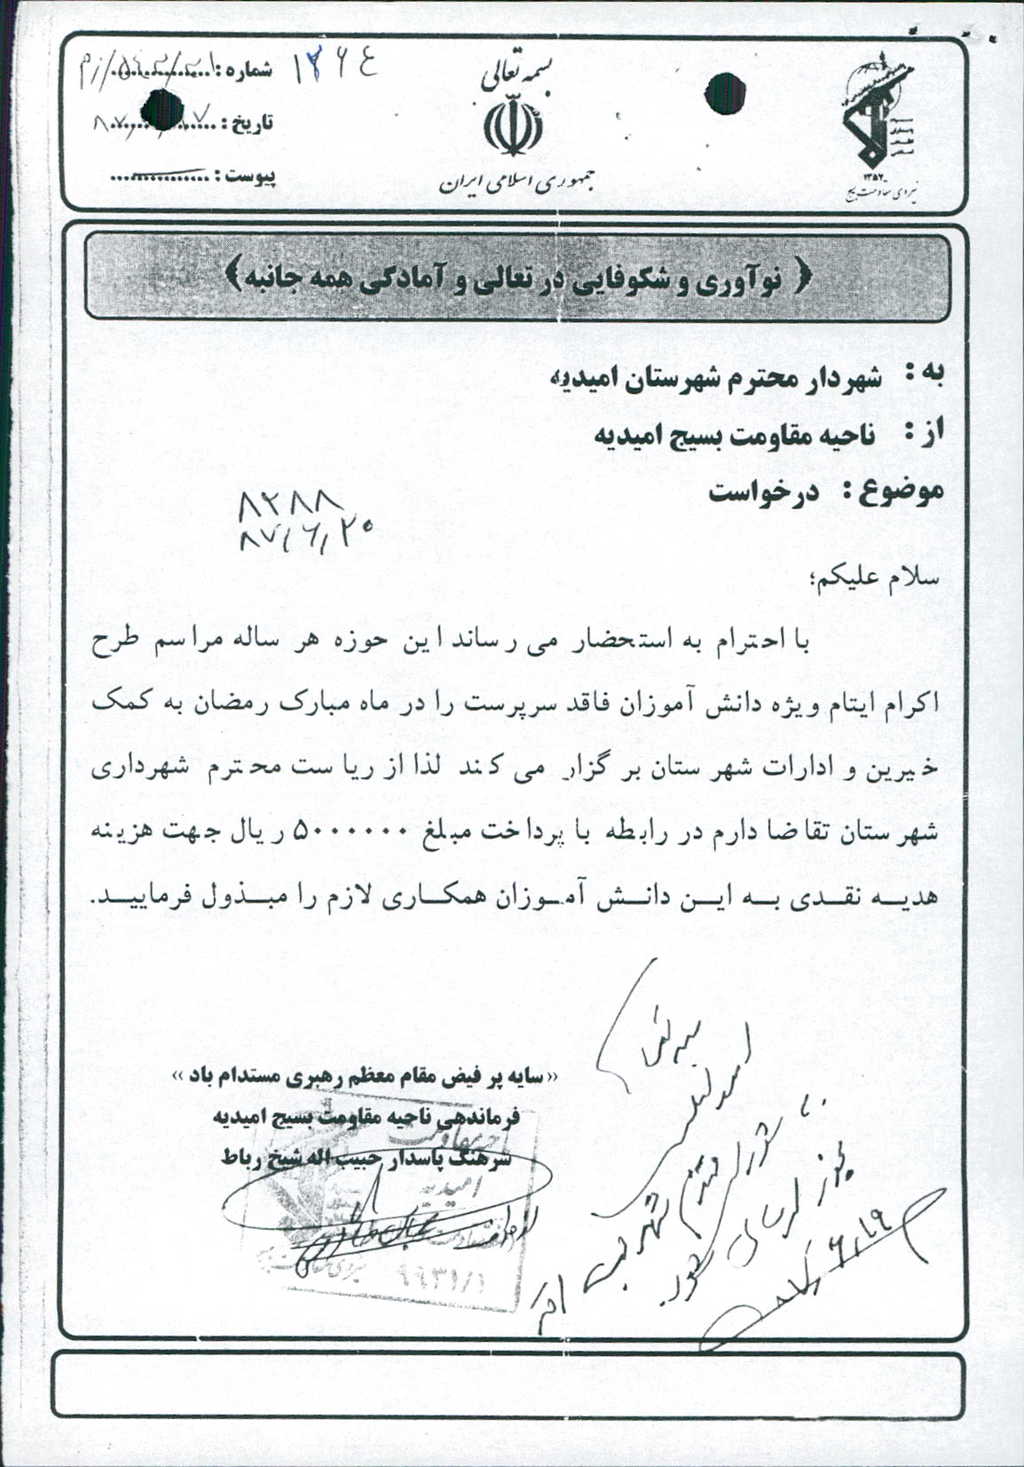 بسمه تعالی
جمهوری اسلامی ایران
۱۳۵۷
نیروی مقاومت بسیج
۱۲۶۴
شماره :
تاریخ :
پیوست :
﴿ نوآوری و شکوفایی در تعالی و آمادگی همه جانبه ﴾
به : شهردار محترم شهرستان امیدیه
از : ناحیه مقاومت بسیج امیدیه
موضوع : درخواست
۸۲۸۸
۸۷/۶/۲۰
سلام علیکم؛
با احترام به استحضار می رساند این حوزه هر ساله مراسم طرح
اکرام ایتام ویژه دانش آموزان فاقد سرپرست را در ماه مبارک رمضان به کمک
خیرین و ادارات شهرستان برگزار می کند لذا از ریاست محترم شهرداری
شهرستان تقاضا دارم در رابطه با پرداخت مبلغ ۵۰۰۰۰۰۰ ریال جهت هزینه
هدیه نقدی به این دانش آموزان همکاری لازم را مبذول فرمایید.
«سایه پر فیض مقام معظم رهبری مستدام باد»
فرماندهی ناحیه مقاومت بسیج امیدیه
سرهنگ پاسدار حبیب اله شیخ رباط
بسمه تعالی
امیدیه